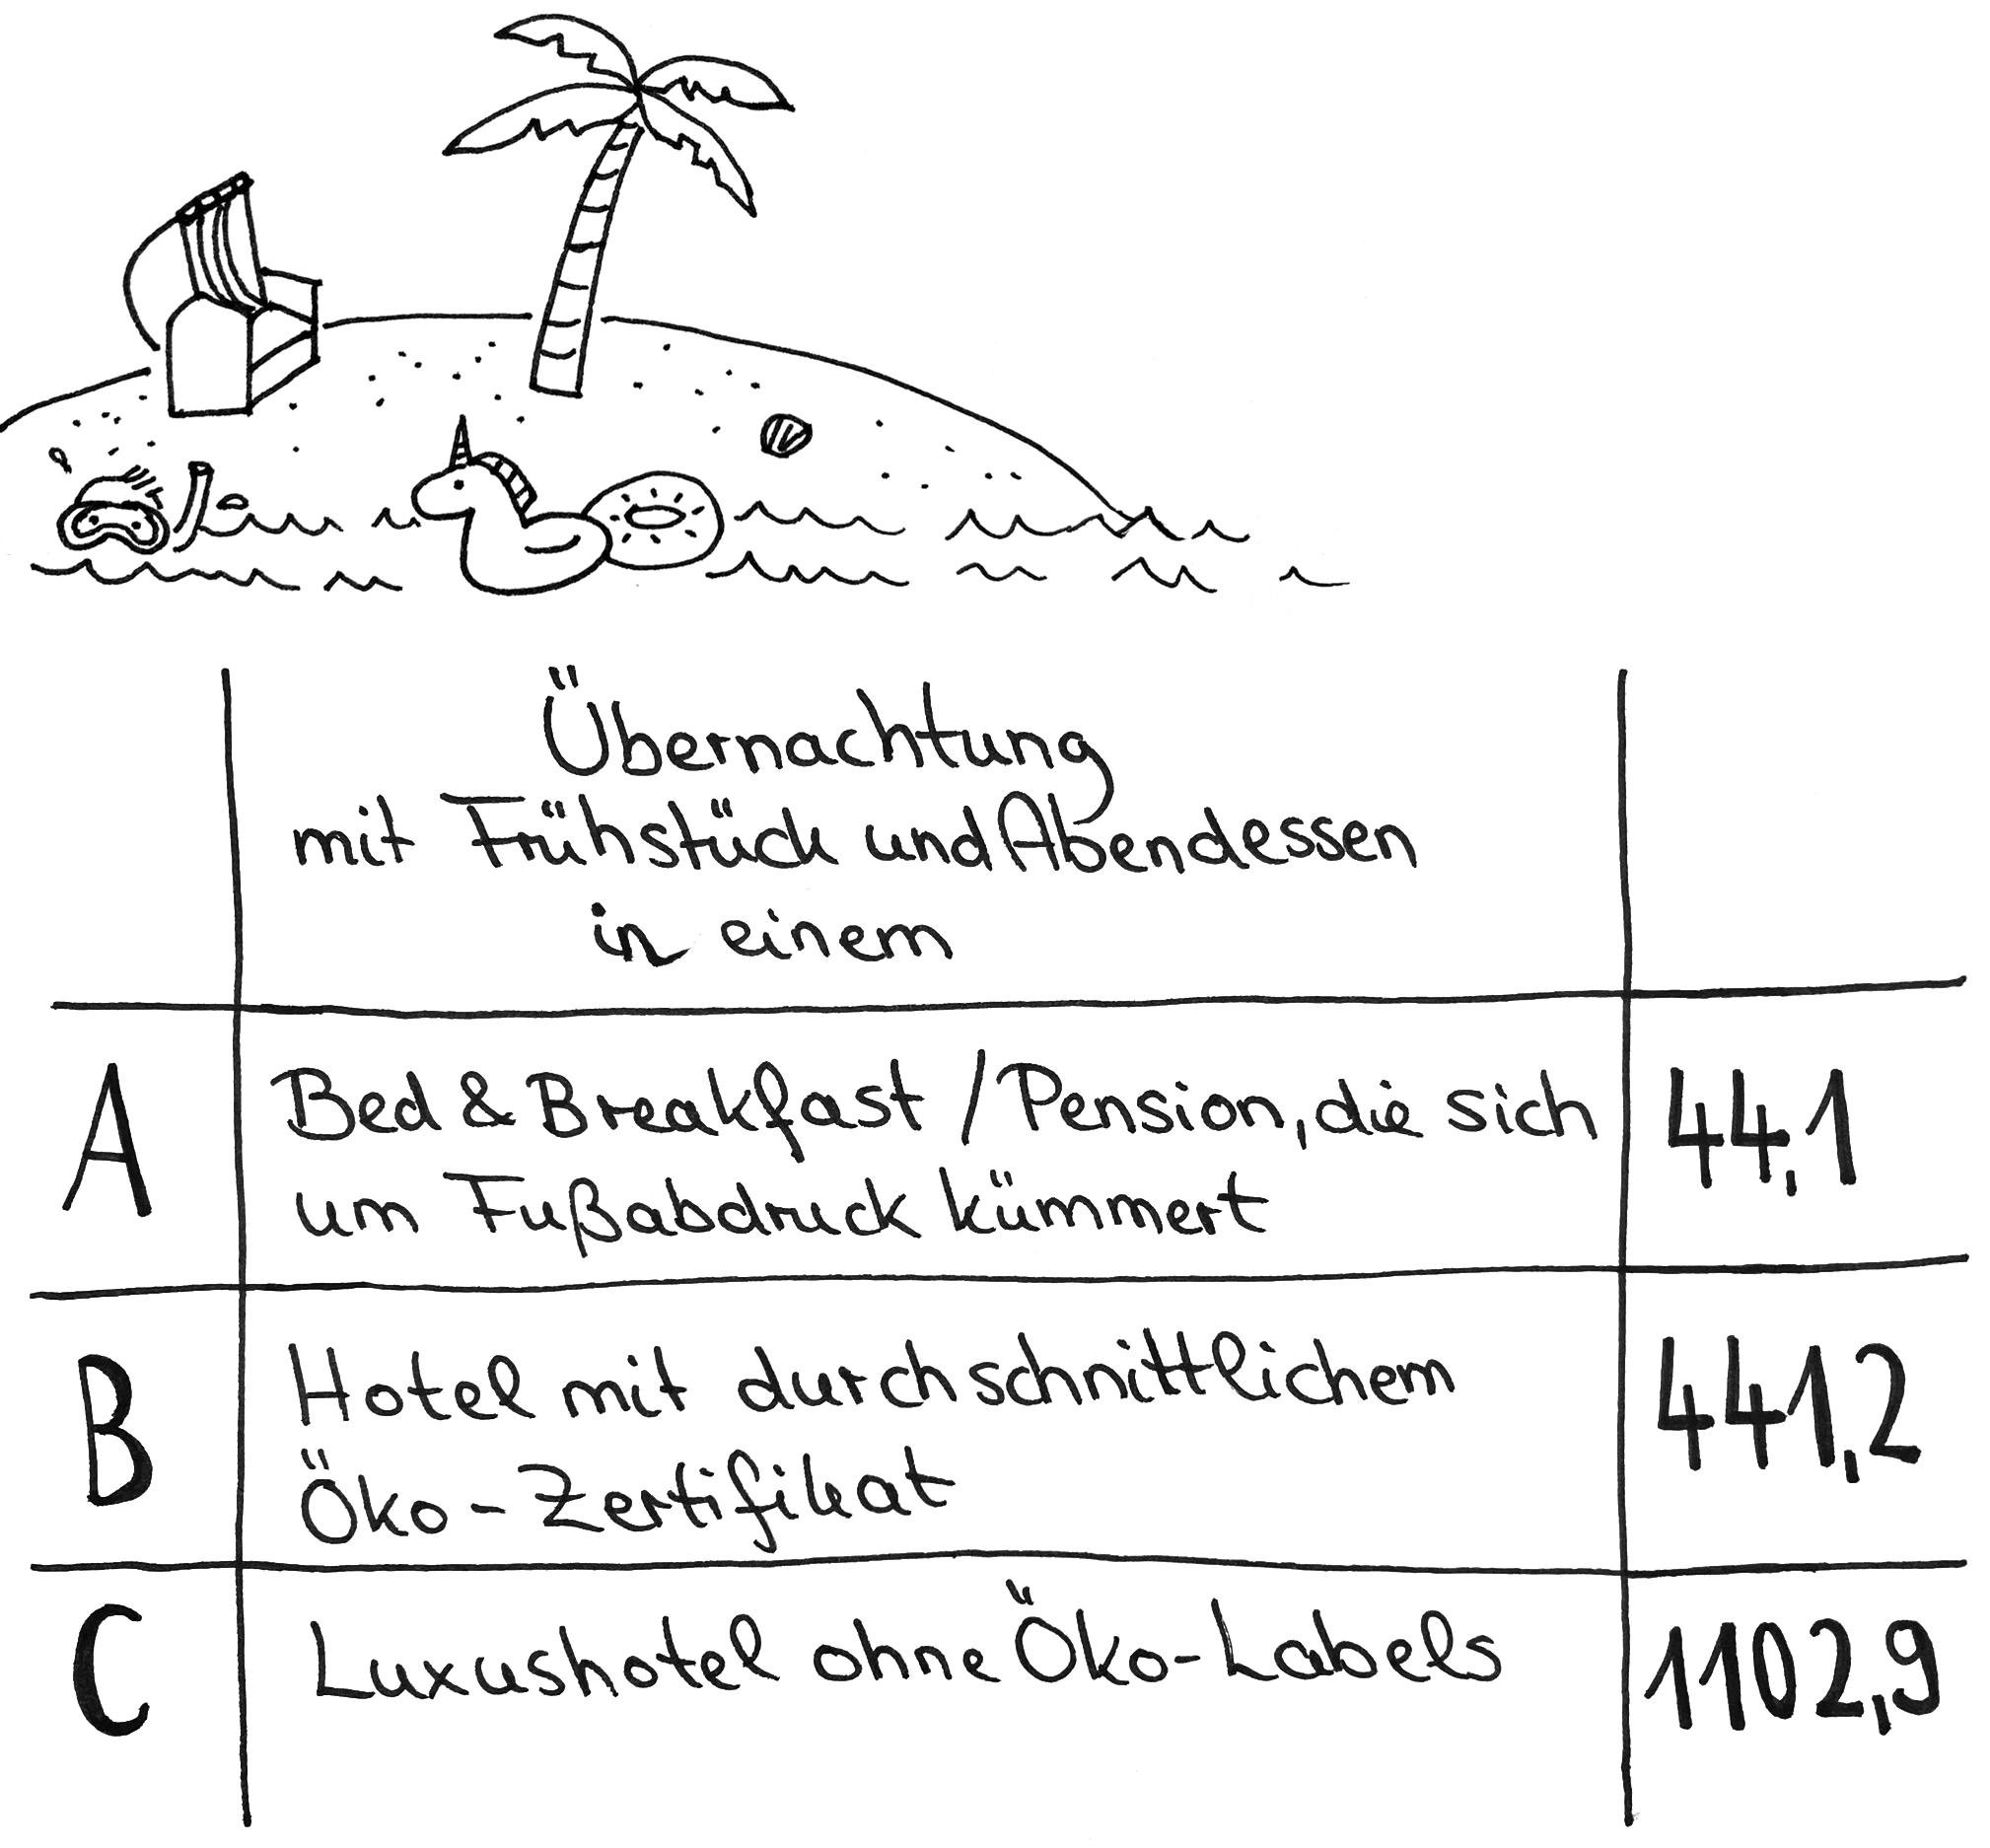 Übernachtung
mit Frühstück und Abendessen
in einem
A
Bed & Breakfast / Pension, die sich
um Fußabdruck kümmert
44,1
B
Hotel mit durchschnittlichem
Öko-Zertifikat
441,2
C
Luxushotel ohne Öko-Labels
1102,9